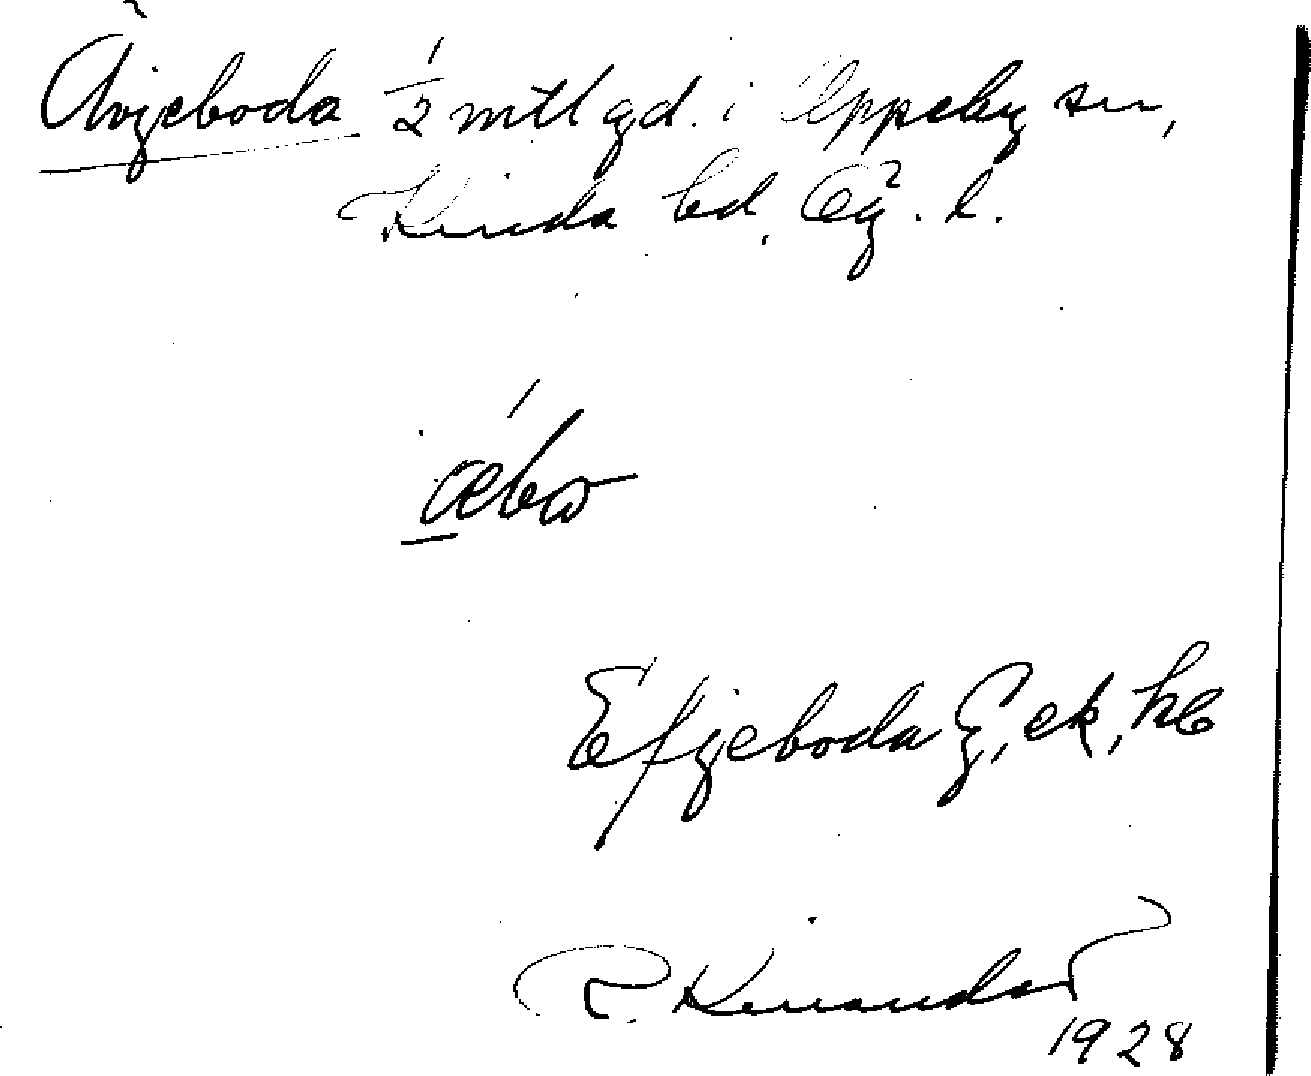 Ävjeboda 1/2 mtl gd. i Oppeby sn,
Kinda hd, Ög. l.
Efjeboda G, ek, hc
R. Kinander
1928